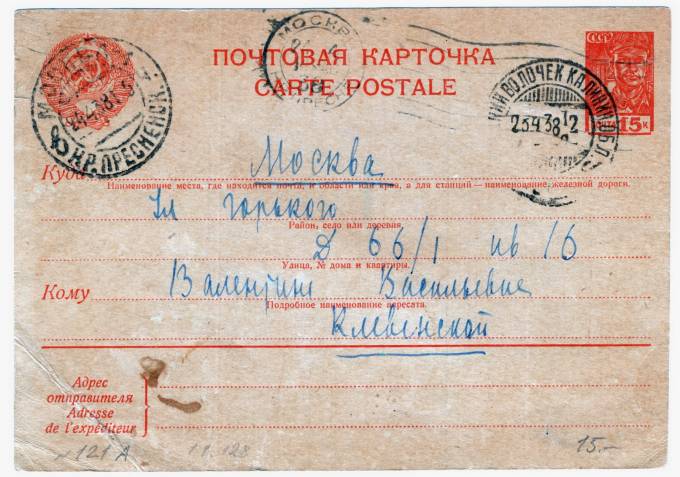 ПОЧТОВАЯ КАРТОЧКА
CARTE POSTALE
МОСКВА
СССР
ПОЧТА 15К
ВОЛОЧЕК КАЛИНИН.ОБЛ.
23 4 38 12
КР. ПРЕСНЕНСК.
Куда Москва
Наименование места, где находится почта, и области или края, а для станций — наименование железной дороги.
Ул Горького
Район, село или деревня.
Д 66/1 кв 16
Улица, № дома и квартиры.
Кому Валентине Васильевне
Подробное наименование адресата.
Клевенской
Адрес
отправителя
Adresse
de l'expéditeur
121 А
15.-